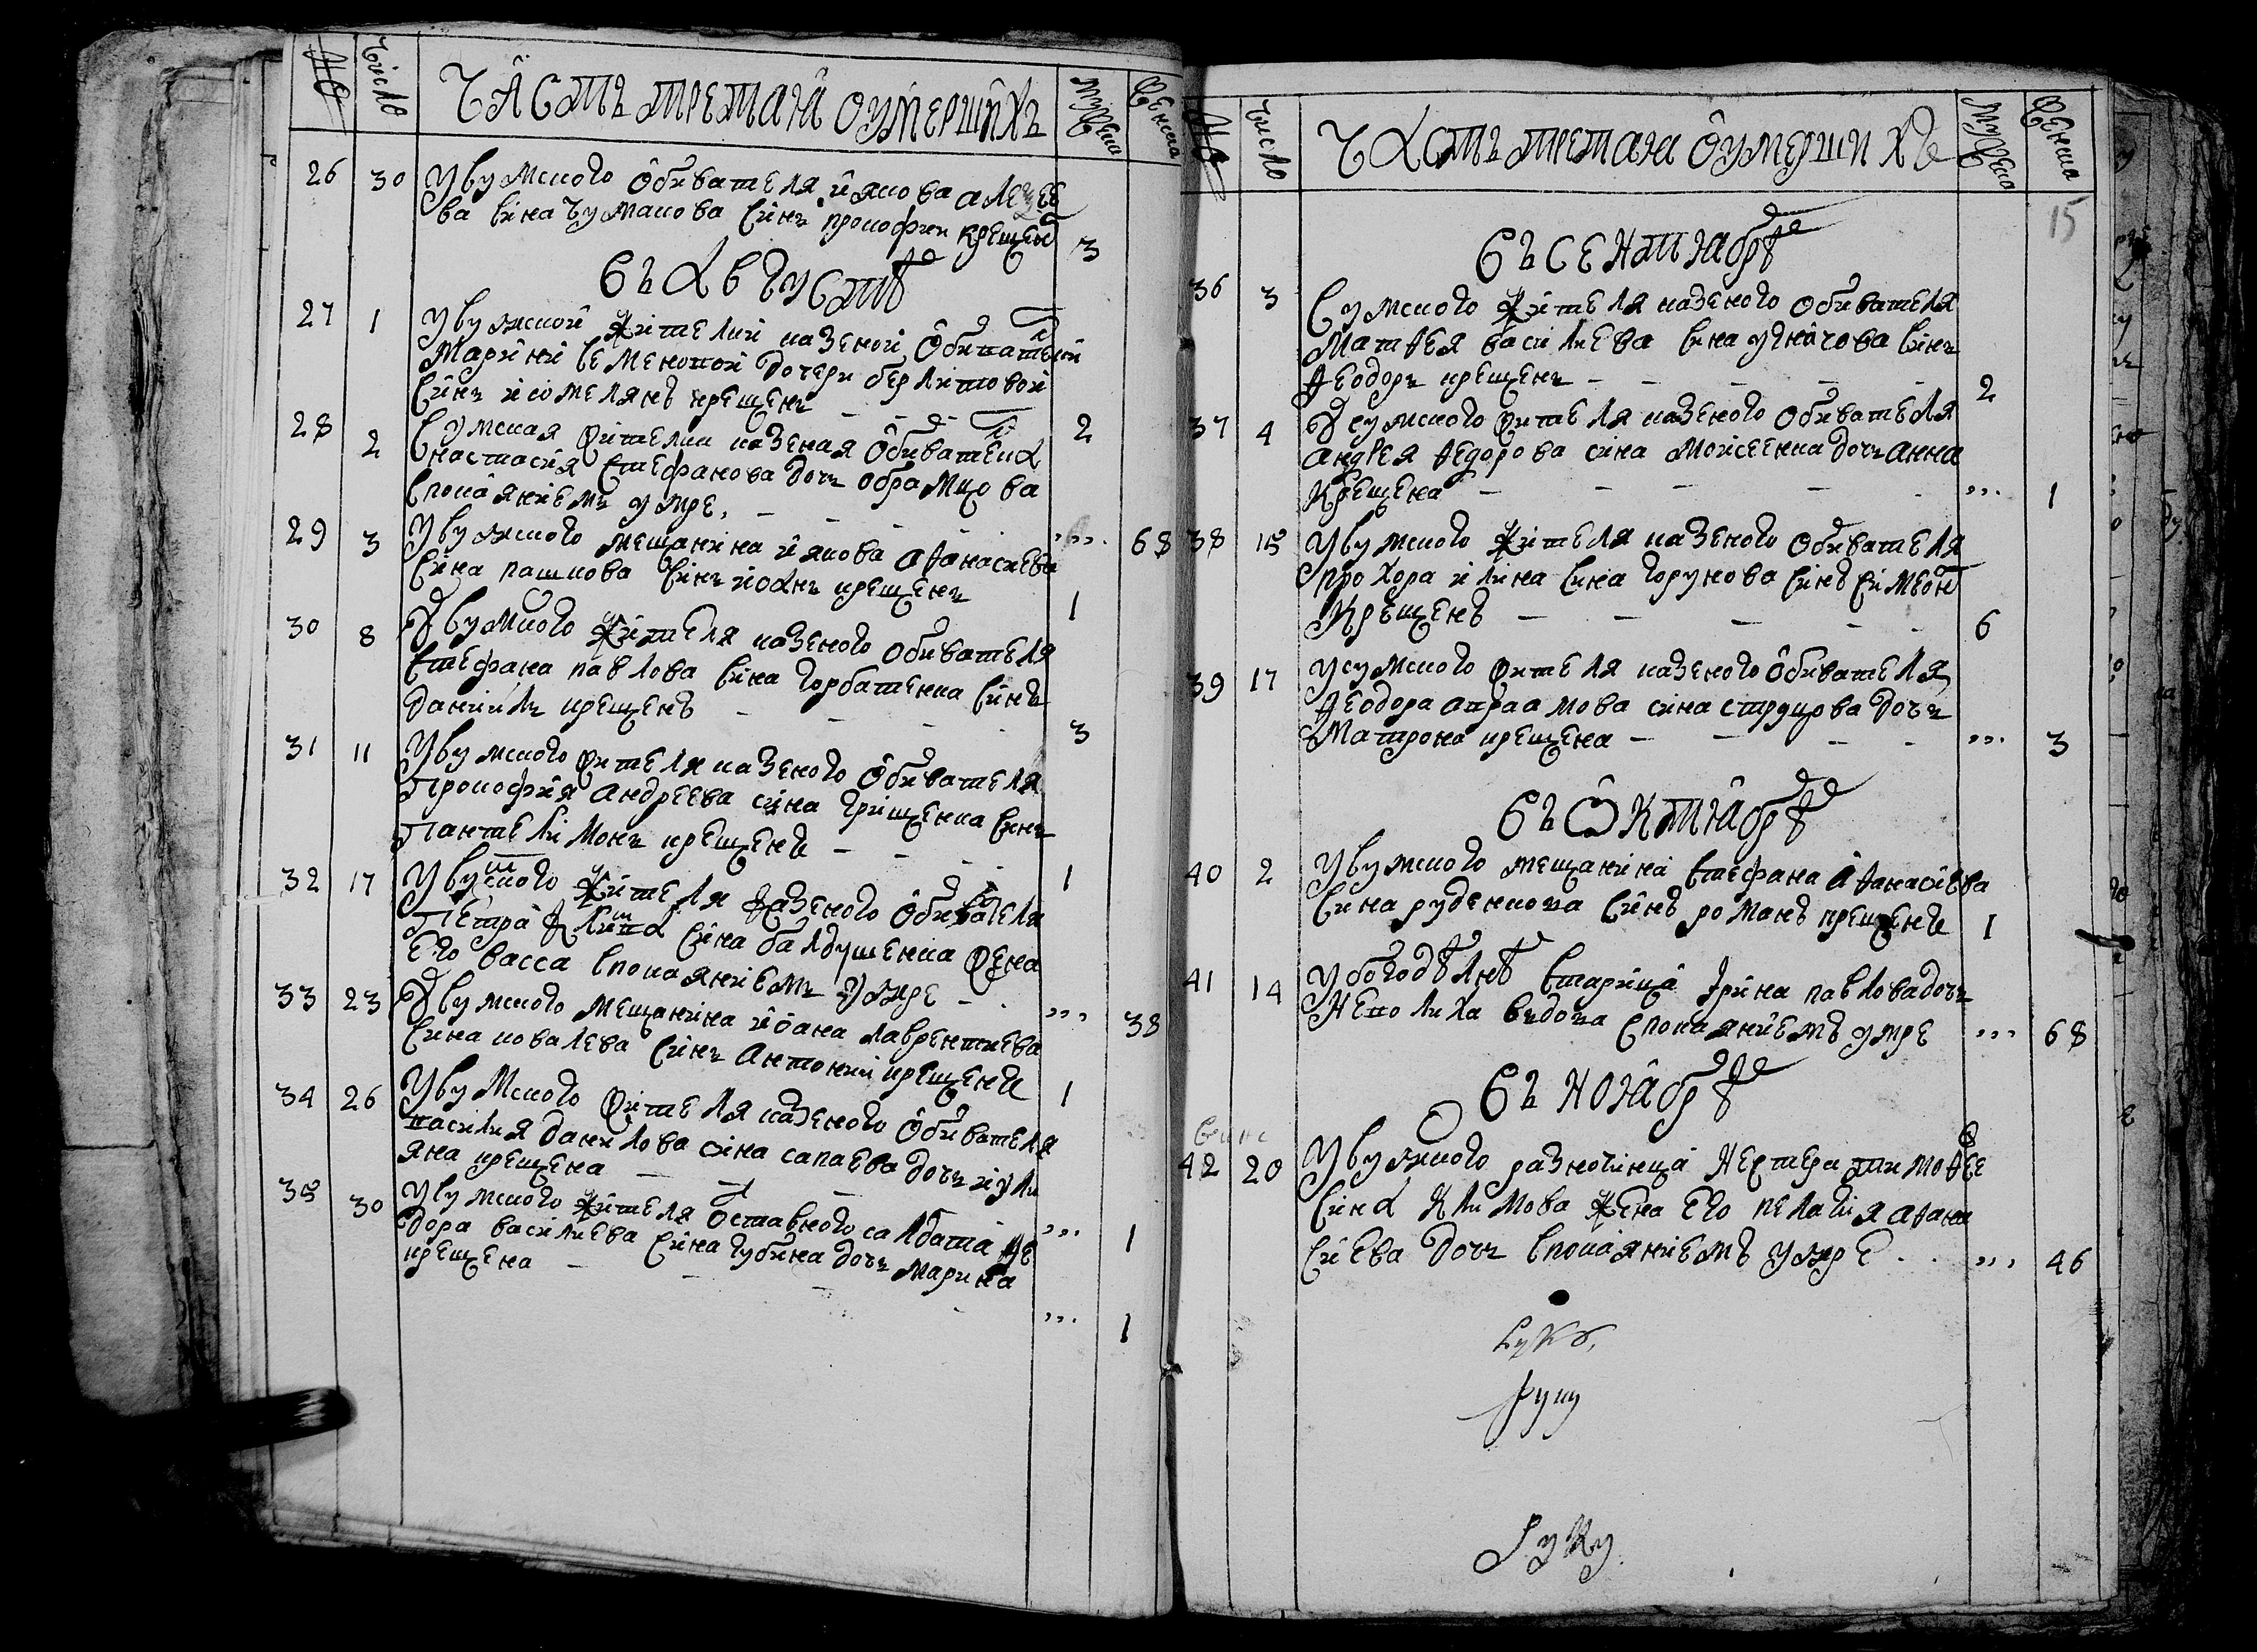 № число часть третаꙗ оумершихъ мужеска женска
26 30 Убумского обивателя иякова алеѯее
ва сина чумакова синъ прокофии крещен 3
въ августѣ
27 1 Убумской жителки казеной обиватель
Марини семеновой дочери берлитовой
синъ иемелянъ крещенъ 2
28 2 Сумская жителка казеная обиватель
настасия стефанова дочь обрамцова
споканиемъ умре, ,,, 68
29 3 Убумского мещанина иякова аѳанасиева
сина пашкова синъ иоанъ крещенъ 1
30 8 Убумского жителя казеного обивателя
стефана павлова сина горбатенка синъ
даниилъ крещенъ 3
31 11 Убумского жителя казеного обивателя
Прокофия андреева сина грищенка синъ
Пантелимонъ крещенъ 1
32 17 Убумского жителя казеного обивателя
Петра сина балдушенка жена
его васса споканиемъ умре ,,, 38
33 23 Убумского мещанина иоана лаврентиева
сина ковалева синъ антоний крещенъ 1
34 26 Убумского жителя казеного обивателя
василия данилова сина сапаева дочь иули
яна крещена ,,, 1
35 30 Убумского жителя оставного салдата ѳе
дора василиева сина губина дочь марина
крещена ,,, 1
№ число часть третаꙗ оумершихъ мужеска женска
15
въ сентꙗбрѣ
36 3 Сумского жителя казеного обивателя
Матѳея василиева сина синъ
ѳеодоръ крещенъ 2
37 4 Усумского жителя казеного обивателя
андрея ѳедорова сина моисеенка дочь анна
крещена ,,, 1
38 15 Убумского жителя казеного обивателя
прохора илина сина горунова синъ симеон
крещенъ 6
39 17 Усумского жителя казеного обивателя
ѳеодора авраамова сина струцова дочь
матрона крещена ,,, 3
въ ѡктꙗбрѣ
40 2 Убумского мещанина стефана аѳанасиева
сина руденкова синъ романъ крещенъ 1
41 14 Убогодѣлнѣ старица ирина павлова дочь
вдова споканиемъ умре ,,, 68
въ ноꙗбрѣ
42 20 Убумского разночинца тимоѳее
сина климова жена его пелагия аѳана
сиева дочь споканиемъ умре ,,, 46
руку
руку